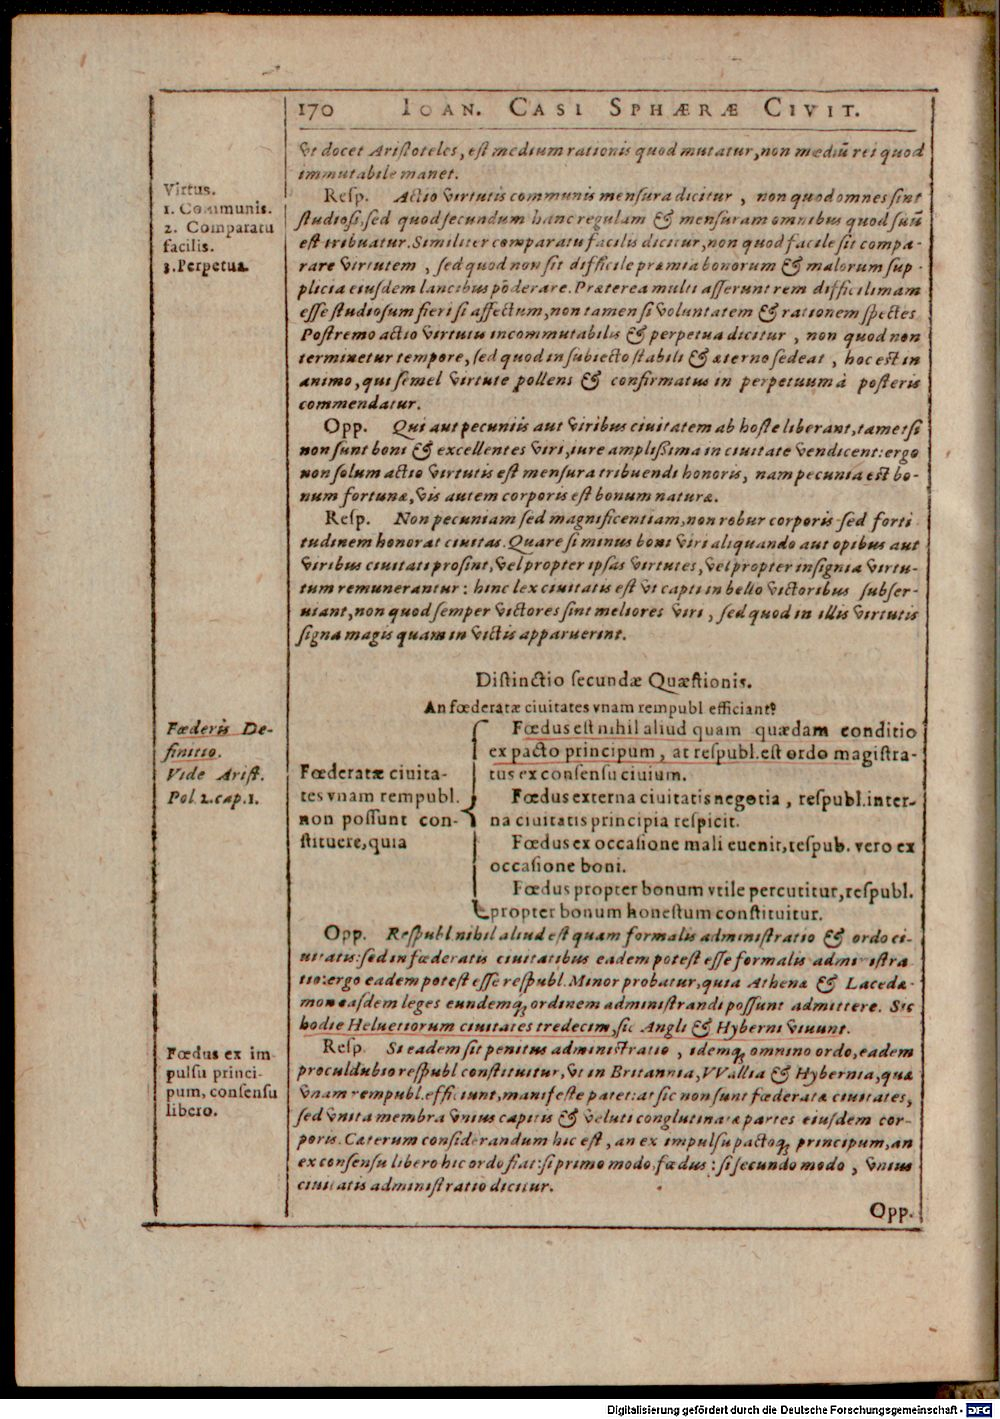 170 IOAN. CASI SPHÆRÆ CIVIT.
vt docet Aristoteles, est medium rationis quod mutatur, non mediũ rei quod
immutabile manet.
Virtus.
1. Communis.
2. Comparatu
facilis.
3. Perpetua.
Resp. Actio virtutis communis mensura dicitur, non quod omnes sint
studiosi, sed quod secundum hanc regulam & mensuram omnibus quod suũ
est tribuatur. Similiter comparatu facilis dicitur, non quod facile sit compa-
rare virtutem, sed quod non sit difficile præmia bonorum & malorum sup-
plicia eiusdem lancibus põderare. Præterea multi asserunt rem difficilimam
esse studiosum fieri si affectum, non tamen si voluntatem & rationem spectes.
Postremo actio virtutis incommutabilis & perpetua dicitur, non quod non
terminetur tempore, sed quod in subiecto stabili & æterno sedeat, hoc est in
animo, qui semel virtute pollens & confirmatus in perpetuum à posteris
commendatur.
Opp. Qui aut pecuniis aut viribus ciuitatem ab hoste liberant, tametsi
non sunt boni & excellentes viri, iure amplißima in ciuitate vendicent: ergo
non solum actio virtutis est mensura tribuendi honoris, nam pecunia est bo-
num fortunæ, vis autem corporis est bonum naturæ.
Resp. Non pecuniam sed magnificentiam, non robur corporis sed forti
tudinem honorat ciuitas. Quare si minus boni viri aliquando aut opibus aut
viribus ciuitati prosint, vel propter ipsas virtutes, vel propter insignia virtu-
tum remunerantur: hinc lex ciuitatis est vt capti in bello victoribus subser-
uiant, non quod semper victores sint meliores viri, sed quod in illis virtutis
signa magis quam in victis apparuerint.
Distinctio secundæ Quæstionis.
An fœderatæ ciuitates vnam rempubl efficiant?
Fœderis De-
finitio.
Vide Arist.
Pol. 2. cap. 1.
Fœderatæ ciuita-
tes vnam rempubl.
non possunt con-
stituere, quia
Fœdus est nihil aliud quam quædam conditio
ex pacto principum, at respubl. est ordo magistra-
tus ex consensu ciuium.
Fœdus externa ciuitatis negotia, respubl. inter-
na ciuitatis principia respicit.
Fœdus ex occasione mali euenit, respub. vero ex
occasione boni.
Fœdus propter bonum vtile percutitur, respubl.
propter bonum honestum constituitur.
Opp. Respubl nihil aliud est quam formalis administratio & ordo ci-
uitatis: sed in fœderatis ciuitatibus eadem potest esse formalis administra
tio: ergo eadem potest esse respubl. Minor probatur, quia Athenæ & Lacedæ-
mon easdem leges eundemq; ordinem administrandi possunt admittere. Sic
hodie Heluetiorum ciuitates tredecim, sic Angli & Hyberni viuunt.
Fœdus ex im-
pulsu princi-
pum, consensu
libero.
Resp. Si eadem sit penitus administratio, idemq; omnino ordo, eadem
proculdubio respubl constituitur, vt in Britannia, VVallia & Hybernia, quæ
vnam rempubl. efficiunt, manifeste patet: at sic non sunt fœderatæ ciuitates,
sed vnita membra vnius capitis & veluti conglutinatæ partes eiusdem cor-
poris. Cæterum considerandum hic est, an ex impulsu pactoq; principum, an
ex consensu libero hic ordo fiat: si primo modo, fœdus: si secundo modo, vnius
ciuitatis administratio dicitur.
Opp.
Digitalisierung gefördert durch die Deutsche Forschungsgemeinschaft - DFG